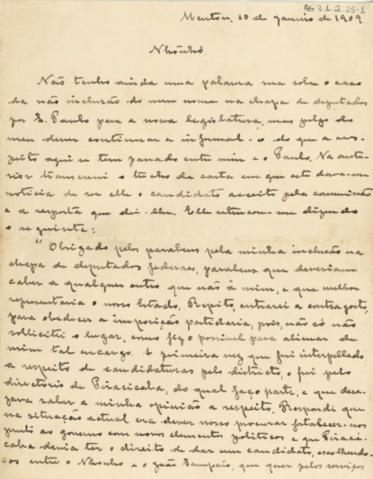 AG 3.1.2.25-1
Mentor, 10 de janeiro de 1909
Nhônhô.
Não tenho ainda uma palavra sua sobre o caso
da não inclusão do meu nome na chapa de deputados
por S. Paulo para a nova legislatura, mas julgo do
meu dever continuar a informal-o do que a res-
peito aqui se tem passado entre mim e o Paulo. Na ante-
rior transcrevi o trecho de carta em que este dava-me
noticia de ser elle o candidato acceito pela commissão
e a resposta que dei-lhe. Elle retrucou-me dizendo
o seguinte:
"Obrigado pelos parabens pela minha inclusão na
chapa de deputados federaes, parabens que deveriam
caber a qualquer outro que não à mim, e que melhor
representaria o nosso Estado. Repito, entrarei a contragosto,
para obedecer a imposição partidaria, pois, não só não
sollicitei o lugar, como fiz o possivel para alienar de
mim tal encargo. A primeira vez que fui interpellado
a respeito de candidaturas pelo districto, o fui pelo
directorio de Piracicaba, do qual faço parte, e que dese-
java saber a minha opinião a respeito. Respondi que
na situação actual era dever nosso procurar fortalecer-nos
junto ao governo com novos elementos politicos e que Piraci-
caba devia ter o direito de dar um candidato, escolhendo-
os entre o Nhonho e o João Sampaio, que quer pelos serviços